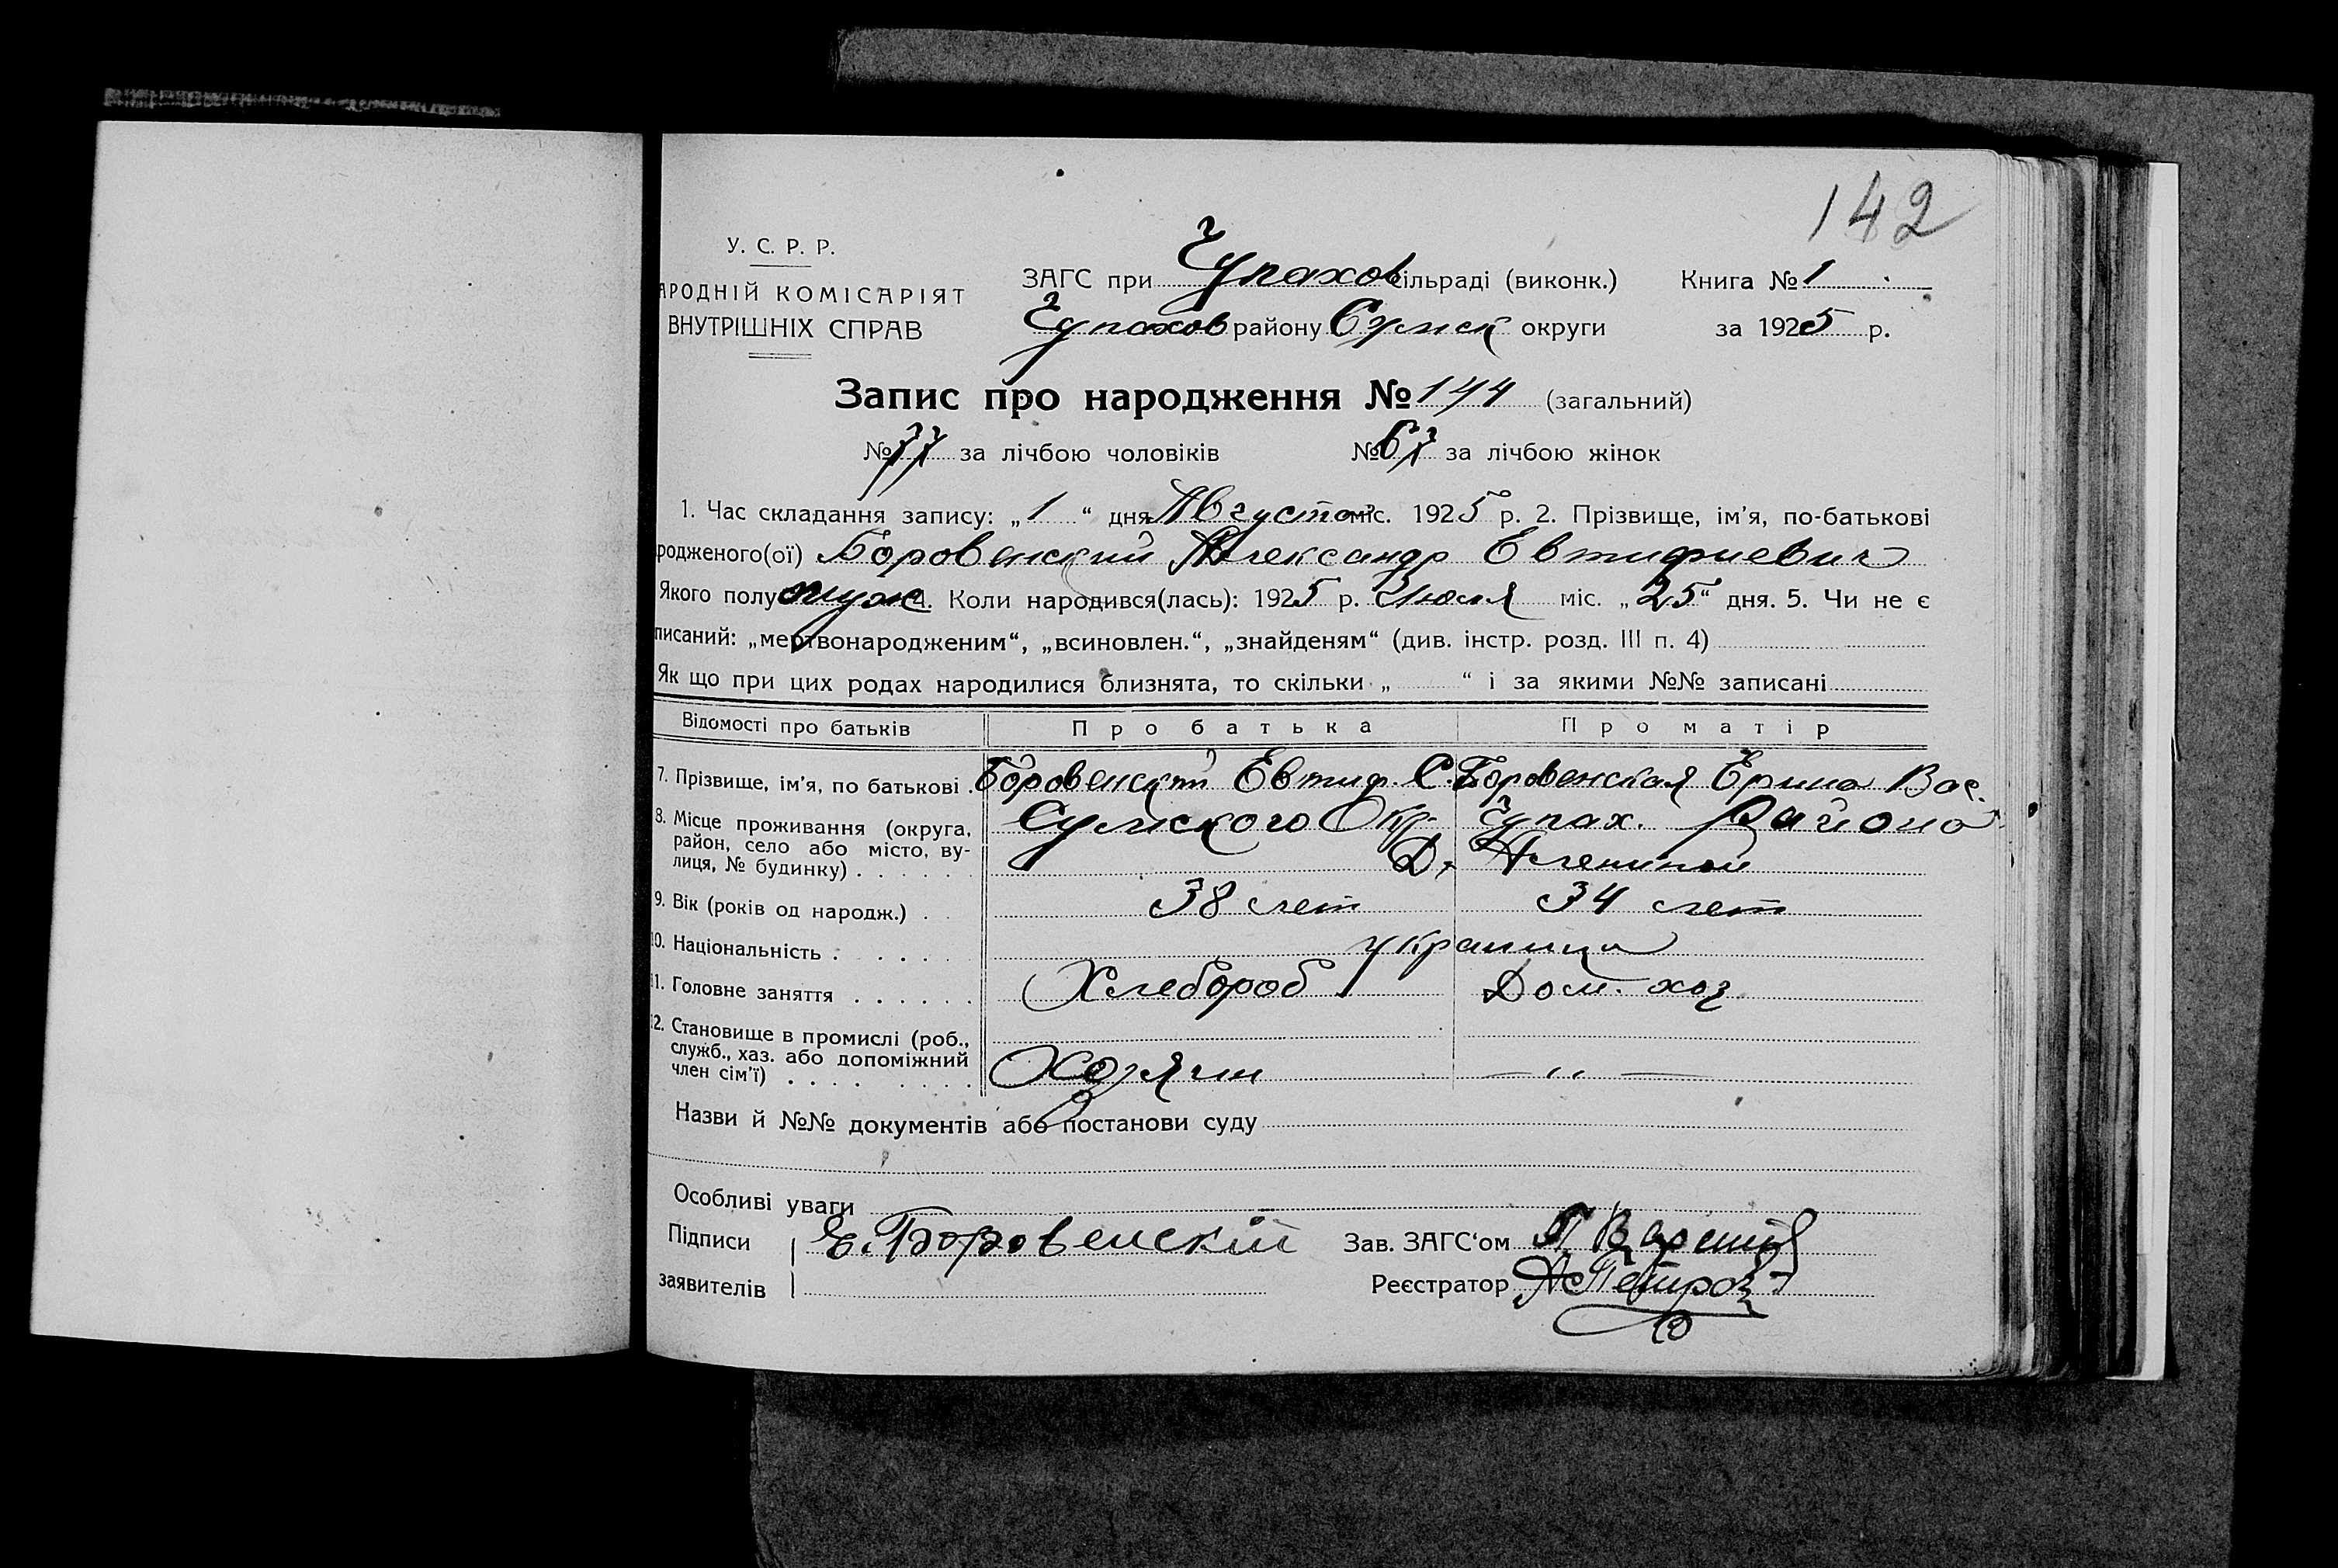 142
У. С. Р. Р.
АРОДНІЙ КОМІСАРІЯТ
ВНУТРІШНІХ СПРАВ
ЗАГС при Чупахов сільраді (виконк.) Книга № 1
Чупахов району Сумск округи за 1925 р.
Запис про народження № 144 (загальний)
№ 77 за лічбою чоловіків № 67 за лічбою жінок
1. Час складання запису: „ 1 “ дня Августа міс. 1925 р. 2. Прізвище, ім’я, по-батькові
родженого(ої) Боровенский Александр Евтифиевич
Якого полу муж 4. Коли народився(лась): 1925 р. Июля міс. „25“ дня. 5. Чи не є
писаний: „мертвонародженим“, „всиновлен.“, „знайденям“ (див. інстр. розд. III п. 4)
Як що при цих родах народилися близнята, то скільки „ “ і за якими №№ записані
Відомості про батьків Про батька Про матір
7. Прізвище, ім’я, по батькові . Боровенский Евтиф. С. Боровенская Ерина Вас.
8. Місце проживання (округа, район, село або місто, вулиця, № будинку) . . . . . . Сумского Окр. Чупах. Района
Д.
9. Вік (років од народж.) . . 38 лет 34 лет
10. Національність . . . . . украинца
11. Головне заняття . . . . . . Хлебороб Дом. хоз
12. Становище в промислі (роб., служб., хаз. або допоміжний член сім’ї) . . . . . . . . Хозяин — „ —
Назви й №№ документів або постанови суду
Особливі уваги
Підписи Е. Боровенскій Зав. ЗАГС‘ом
заявителів Реєстратор